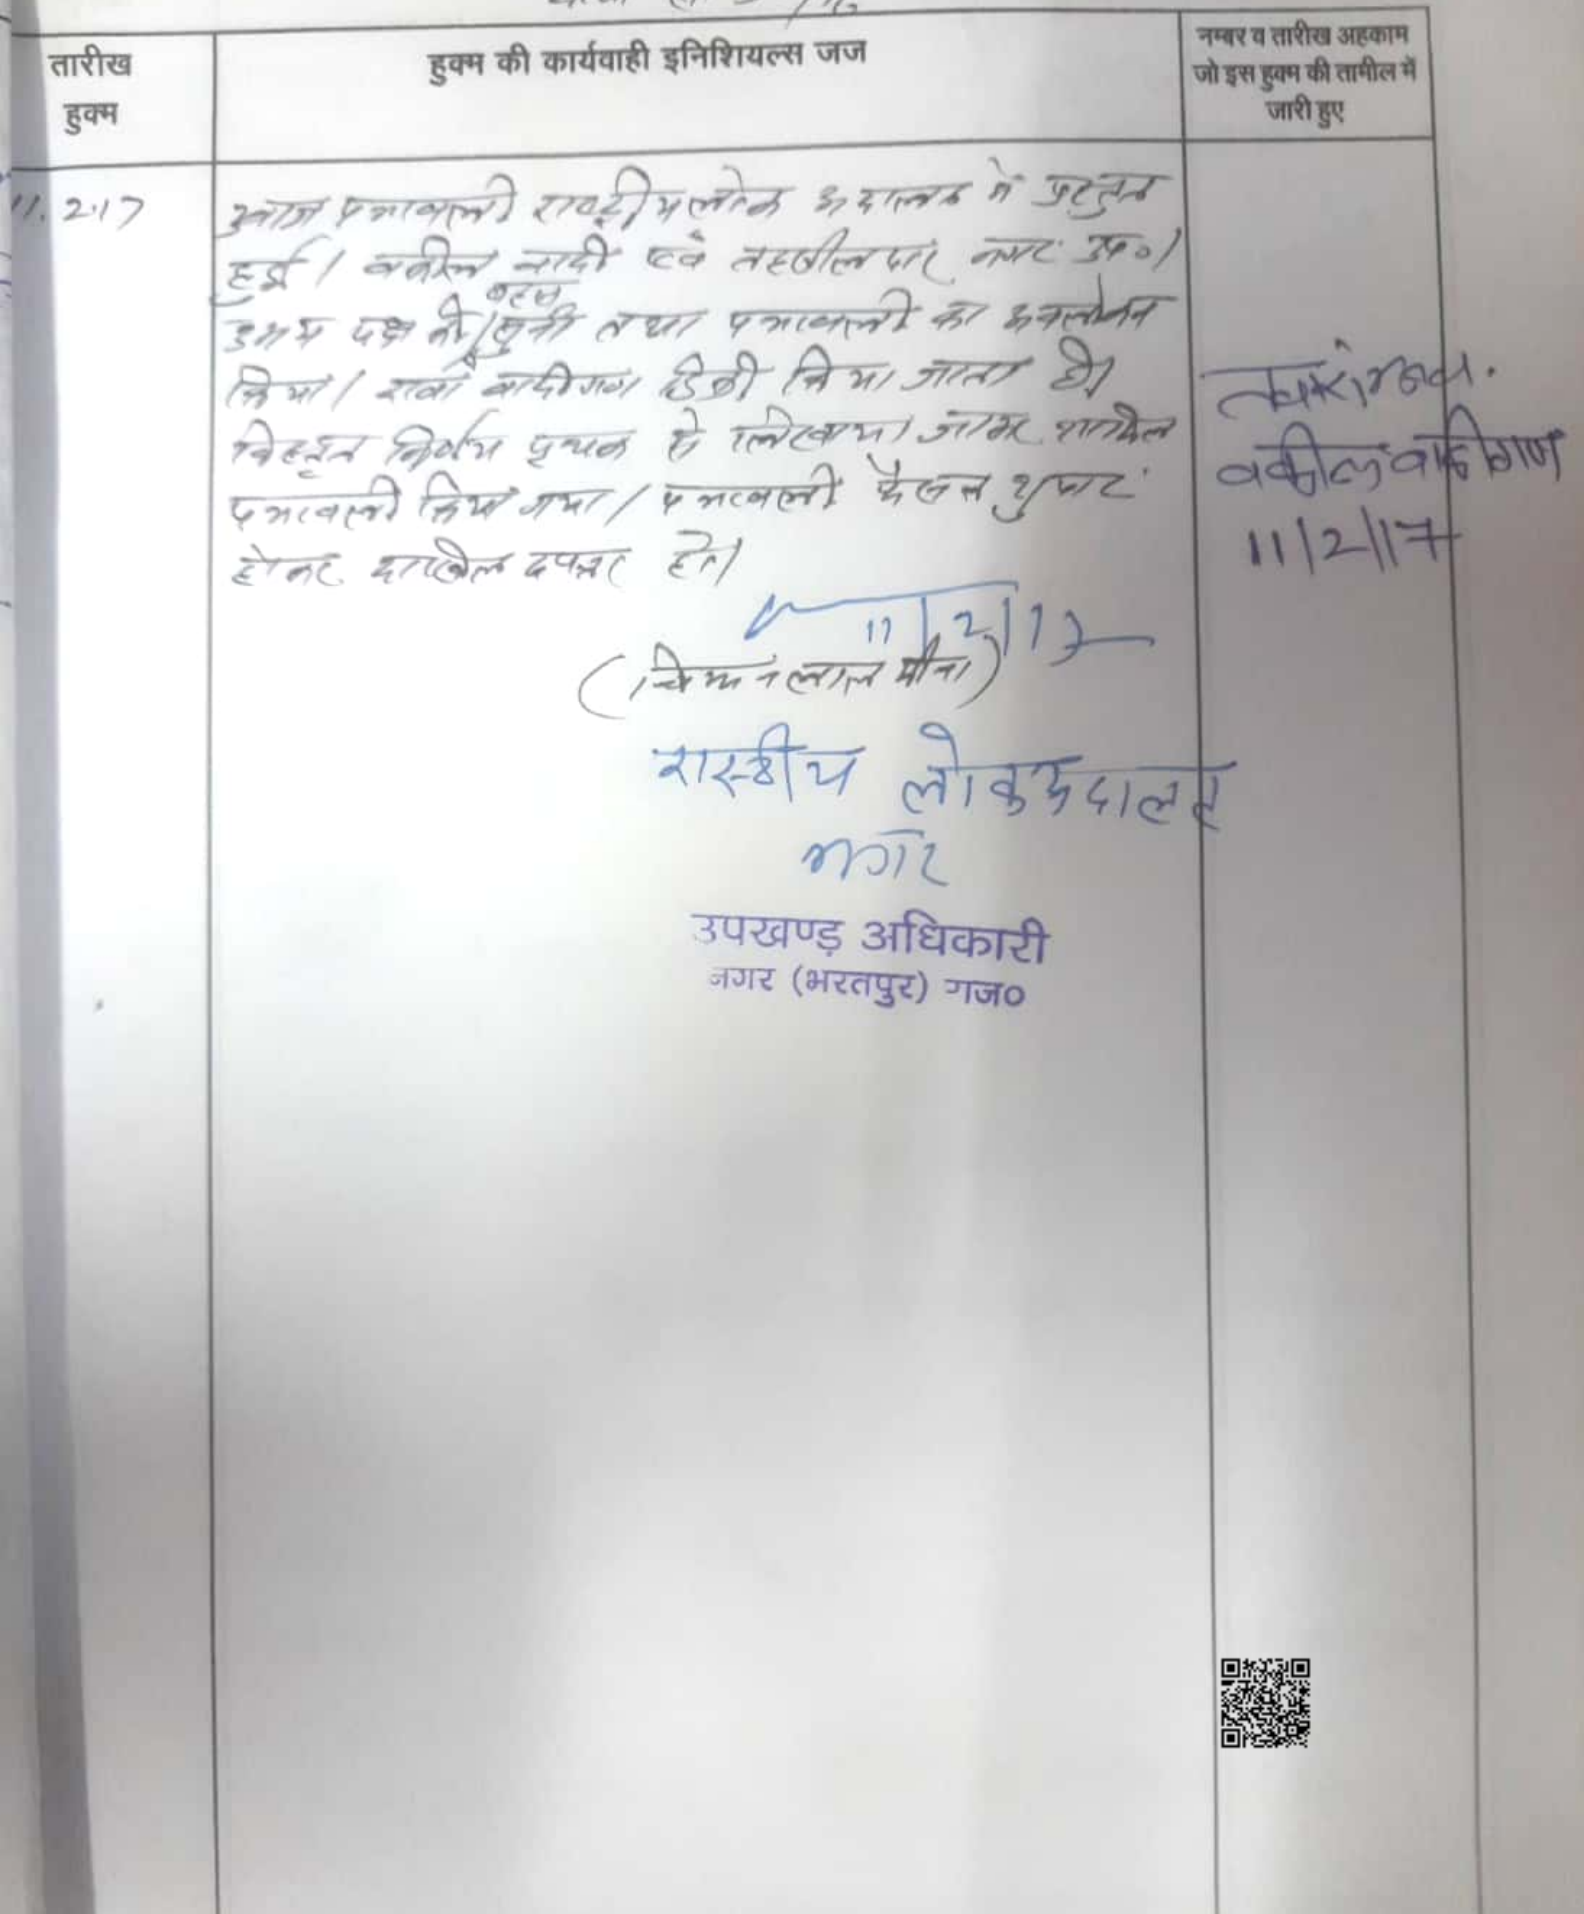 तारीख
हुक्म
हुक्म की कार्यवाही इनिशियल्स जज
नम्बर व तारीख अहकाम
जो इस हुक्म की तामील में
जारी हुए
11.2.17
आज पत्रावली राष्ट्रीय लोक अदालत में प्रस्तुत
हुई। वकील वादी एवं तहसीलदार नगर उप०।
उभय पक्ष की बहस सुनी तथा पत्रावली का अवलोकन
किया। दावा वादीगण डिक्री किया जाता है।
विस्तृत निर्णय पृथक से लिखाया जाकर शामिल
पत्रावली किया गया। पत्रावली फैसल शुमार
होकर दाखिल दफ्तर हो।
11/2/17
(चिमनलाल मीना)
रास्ट्रीय लोक अदालत
नगर
उपखण्ड़ अधिकारी
नगर (भरतपुर) राज०
वकील वादीगण
11/2/17